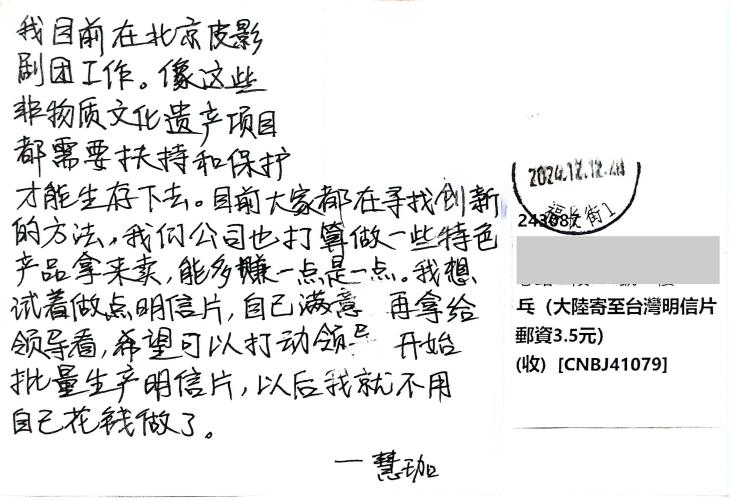 我目前在北京皮影
剧团工作。像这些
非物质文化遗产项目
都需要扶持和保护
才能生存下去。目前大家都在寻找创新
的方法，我们公司也打算做一些特色
产品拿来卖，能多赚一点是一点。我想
试着做点明信片，自己满意 再拿给
领导看，希望可以打动领导 开始
批量生产明信片，以后我就不用
自己花钱做了。
一慧珈
2024.12.12
街1
243087
乓（大陸寄至台灣明信片
郵資3.5元）
(收) [CNBJ41079]